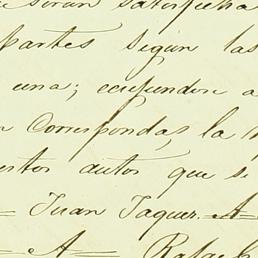 seran satisfecha
partes segun las
una; ecsijendose a
Correspondas, la
estos autos que se
= Juan Jaquez. = A
= A = Rafael